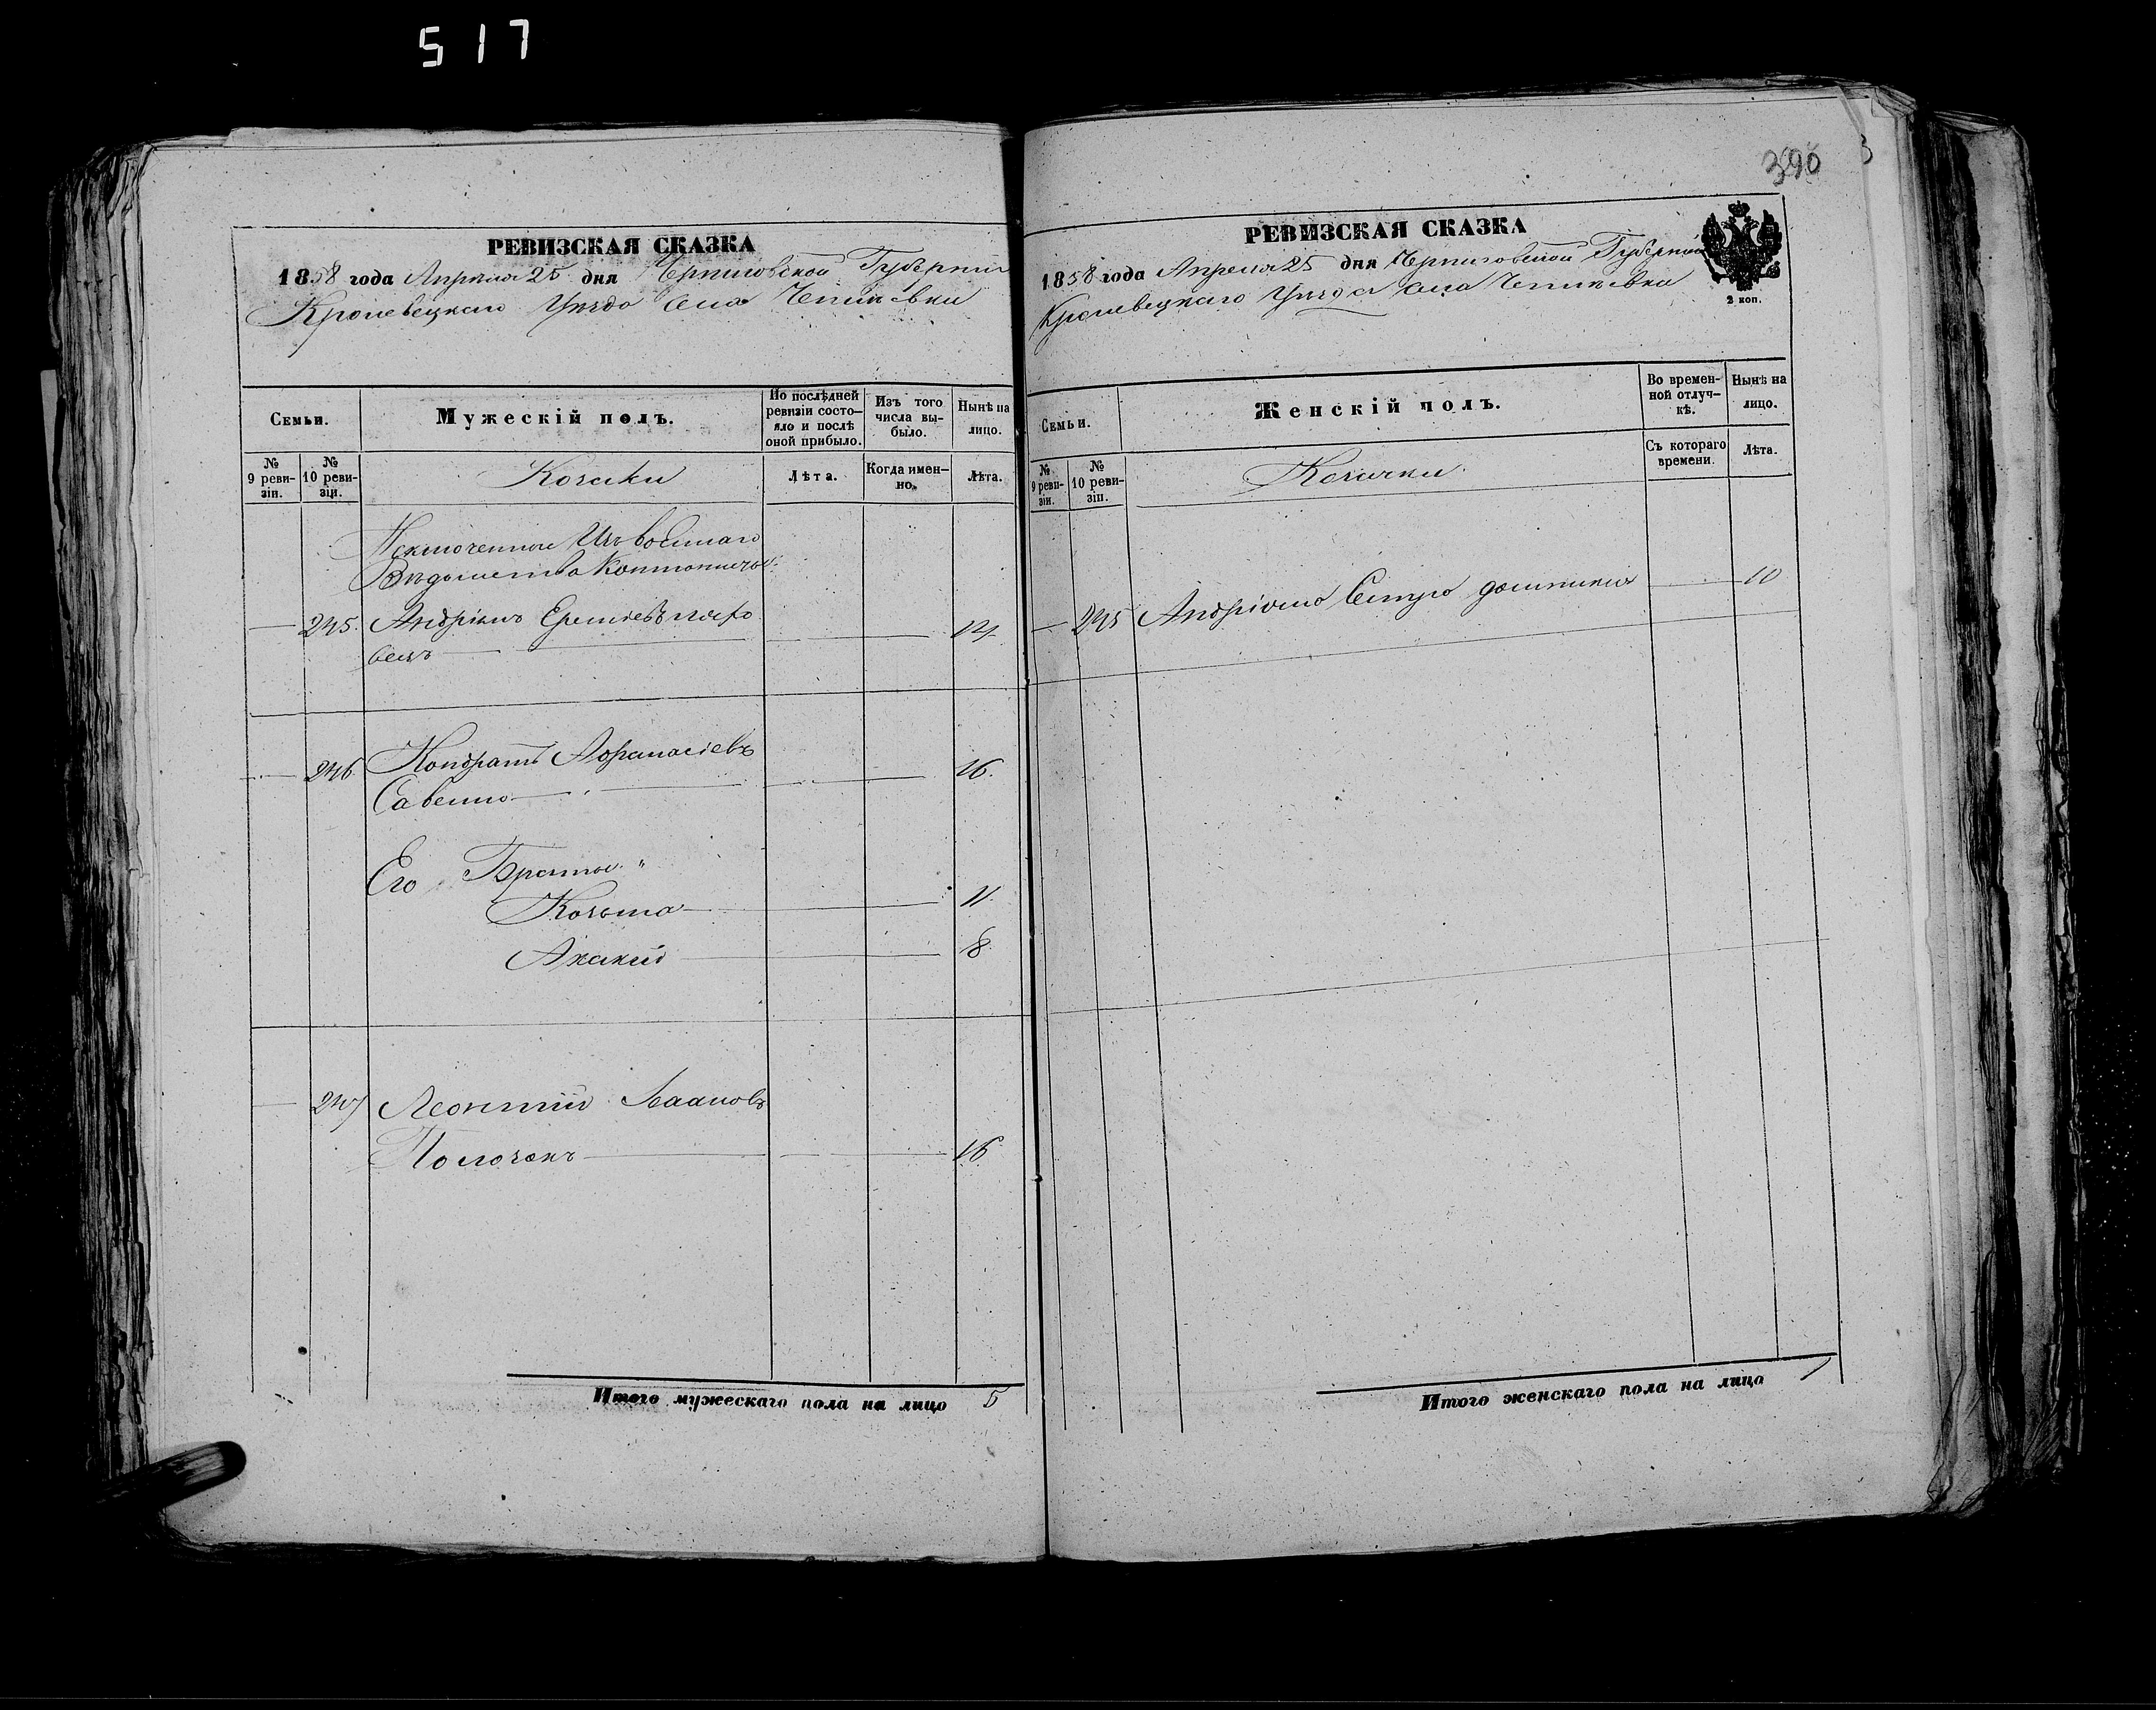 517
390
3
РЕВИЗСКАЯ СКАЗКА
1858 года Апреля 25 дня Черниговской Губерніи
Кролевецкаго Уѣзда Села
Семьи.
Мужескій полъ.
По послѣдней ревизіи состояло и послѣ оной прибыло.
Изъ того числа выбыло.
Нынѣ на лицо.
№ 9 ревизіи.
№ 10 ревизіи.
Козаки
Лѣта.
Когда именно.
Лѣта.
Исключенные Изъ военнаго
Вѣдомства Кантонисты
245. Андріянъ 14
246 Кондратъ Афанасіевъ 16.
Савенко
Его Братья "
Козьма 11
Акакий 8
247 Леонтий Ивановъ
16
Итого мужескаго пола на лицо 5
РЕВИЗСКАЯ СКАЗКА
1858 года Апреля 25 дня Черниговской Губерніи
Кролевецкаго Уѣзда Села
2 коп.
Семьи.
Женскій полъ.
Во временной отлучкѣ.
Нынѣ на лицо.
№ 9 ревизіи.
№ 10 ревизіи.
Козачки
Съ котораго времени.
Лѣта.
245 Андріяна Сестра 10
Итого женскаго пола на лицо 1